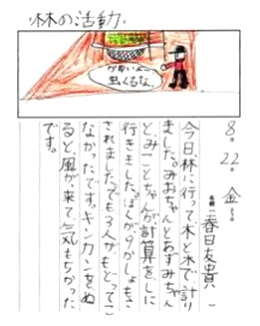 林の活動
かゆいよー
虫くるな。
8月22日金よう日
名前 春日友貴
今日、林に行って、木と木で計り
ました。みおちゃんとあずみちゃん
と、みことちゃんが計算をしに
行きました。ぼくが9かしょもさ
されました。でも3人がもどってこ
なかったです。キンカンをぬ
ると風が、来て、気もちかった
です。